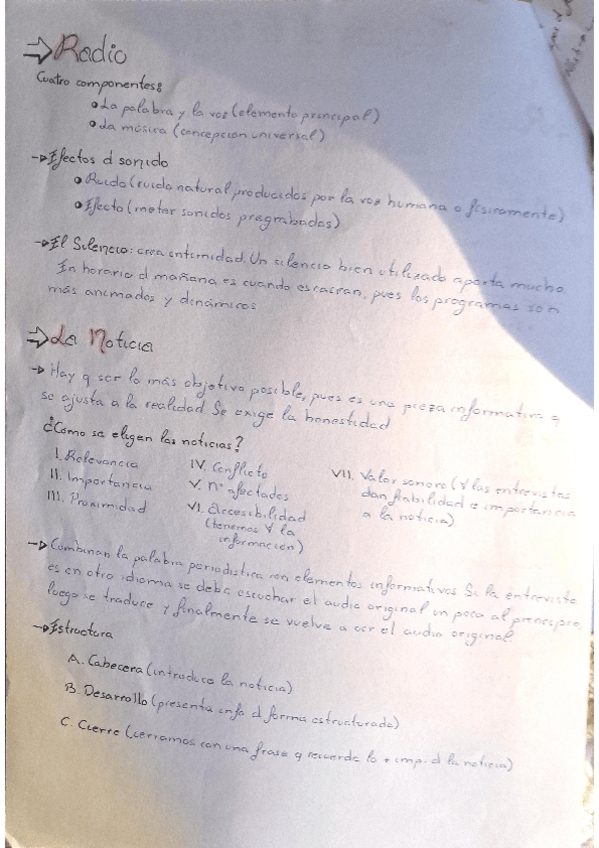 ⇒Radio
Cuatro componentes:
• La palabra y la voz (elemento principal)
• La música (concepción universal)
→Efectos d sonido
• Ruido (ruido natural producidos por la voz humana o físicamente)
• Efecto (meter sonidos pregrabados)
→El Silencio: crea intimidad. Un silencio bien utilizado aporta mucho.
En horario d mañana es cuando escasean, pues los programas son
más animados y dinámicos
⇒La Noticia
→Hay q ser lo más objetivo posible, pues es una pieza informativa q
se ajusta a la realidad Se exige la honestidad
¿Cómo se eligen las noticias?
I. Relevancia
II. Importancia
III. Proximidad
IV. Conflicto
V. Nº afectados
VI. Accesibilidad
(tenemos ∀ la
información)
VII. Valor sonoro (∀ las entrevistas
dan fiabilidad e importancia
a la noticia)
→Combinan la palabra periodística con elementos informativos Si la entrevista
es en otro idioma se debe escuchar el audio original un poco al principio,
luego se traduce y finalmente se vuelve a oír el audio original.
→Estructura
A. Cabecera (introduce la noticia)
B. Desarrollo (presenta info d forma estructurada)
C. Cierre (cerramos con una frase q recuerde lo + imp. d la noticia)